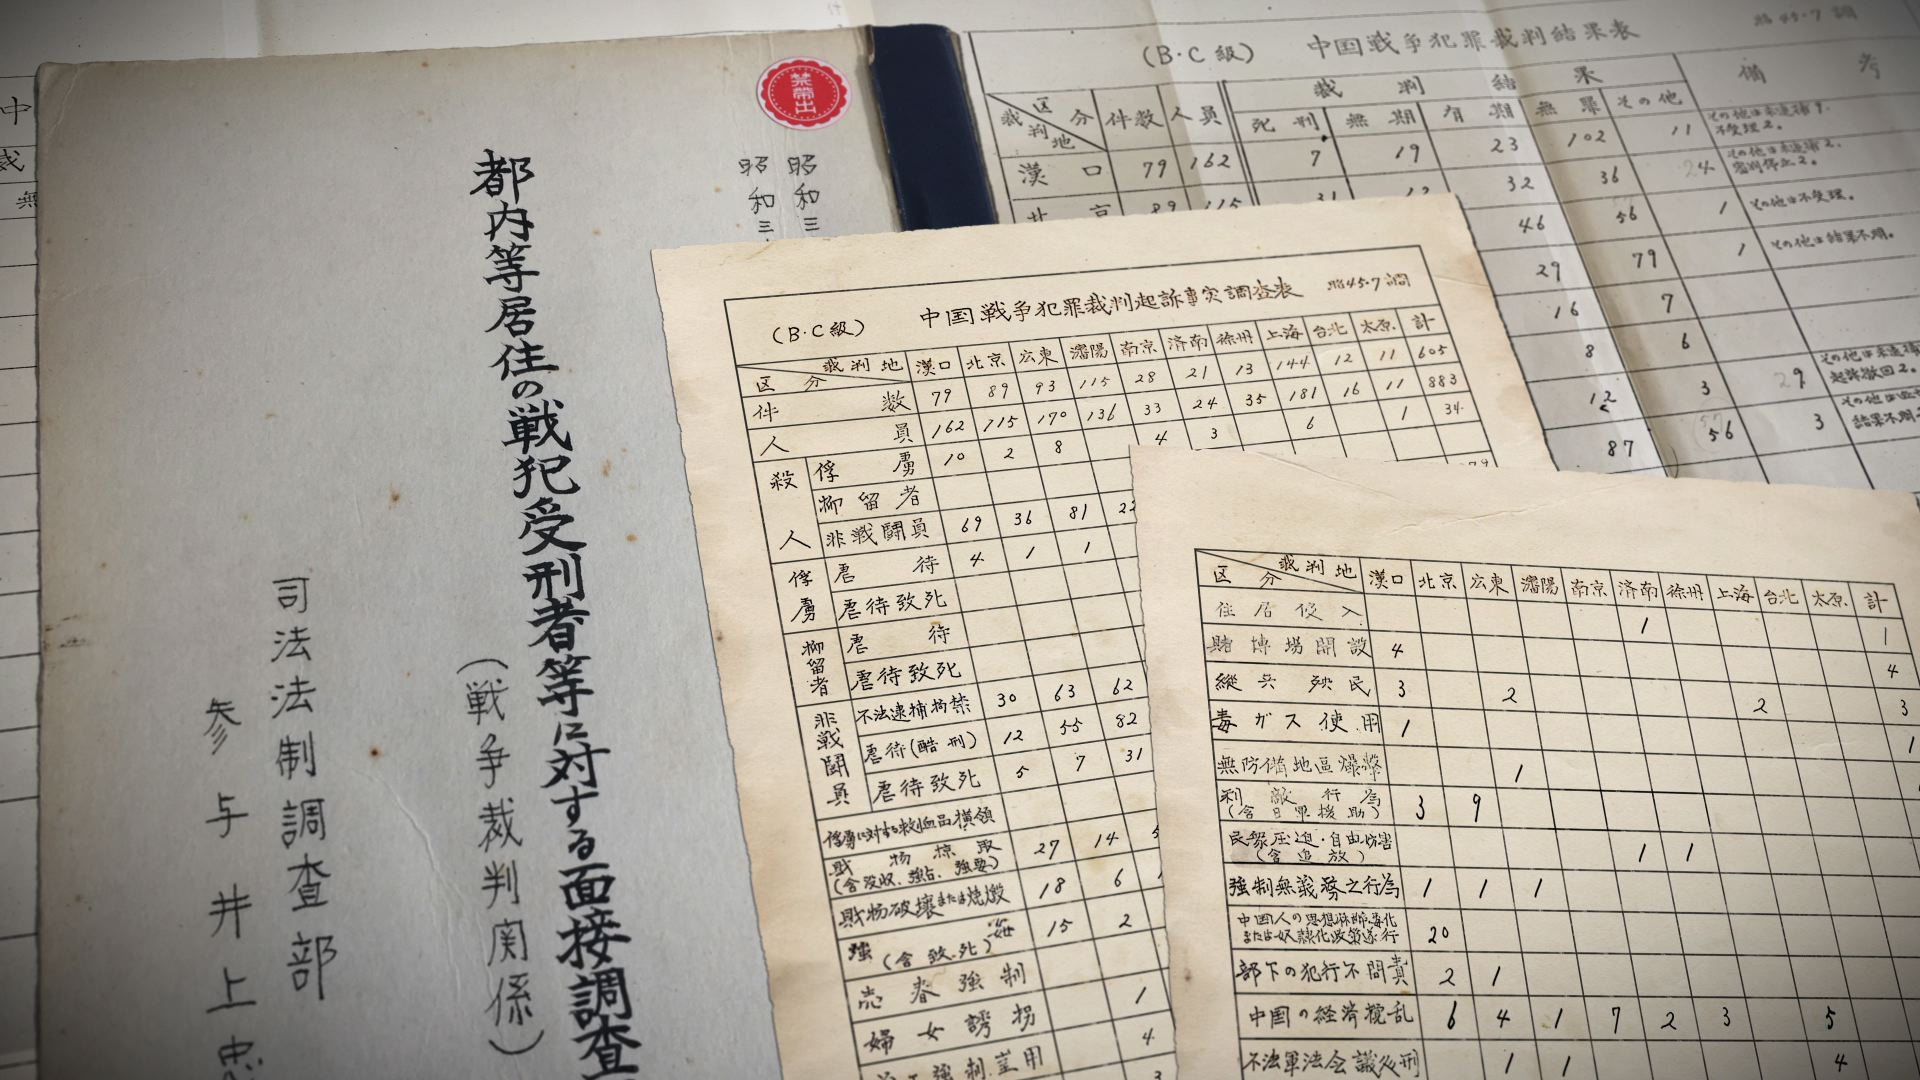 禁帯出
昭和三
昭和三
都内等居住の戦犯受刑者等に対する面接調査
（戦争裁判関係）
司法法制調査部
参与井上忠
中
無
(B・C級) 中国戦争犯罪裁判結果表 昭45.7調
区分 裁判地 件数 人員 裁判結果 備考
死刑 無期 有期 無罪 その他
漢口 79 162 7 19 23 102 11
北京 89 115 31 32 36 24
46 56 1 その他は不受理。
29 79 1 その他は結果不明。
16 7
8 6
12 3 29
87 56 3
(B・C級) 中国戦争犯罪裁判起訴事実調査表 昭45.7調
区分 裁判地 漢口 北京 広東 瀋陽 南京 済南 徐州 上海 台北 太原 計
件数 79 89 93 115 28 21 13 144 12 11 605
人員 162 115 170 136 33 24 35 181 16 11 883
殺人 俘虜 10 2 8 4 3 6 1 34
抑留者
非戦闘員 69 36 81 22
俘虜 虐待 4 1 1
虐待致死
抑留者 虐待
虐待致死
非戦闘員 不法逮捕拘禁 30 63 62
虐待(酷刑) 12 55 82
虐待致死 5 7 31
俘虜に対する救恤品横領
財物掠取 27 14
(含没収、強占、強要)
財物破壊または焼燬 18 6
強姦 15 2
(含致死)
売春強制 1
婦女誘拐 4
区分 裁判地 漢口 北京 広東 瀋陽 南京 済南 徐州 上海 台北 太原 計
住居侵入 1 1
賭博場開設 4 4
縦兵殃民 3 2 2 3
毒ガス使用 1 1
無防備地区爆撃 1
利敵行為 3 9
(含日軍援助)
民衆圧迫・自由妨害 1 1
(含追放)
強制無義務之行為 1 1 1
中国人の思想麻酔、毒化
または奴隷化政策遂行 20
部下の犯行不問責 2 1
中国の経済攪乱 6 4 1 7 2 3 5
不法軍法会議処刑 1 1 4